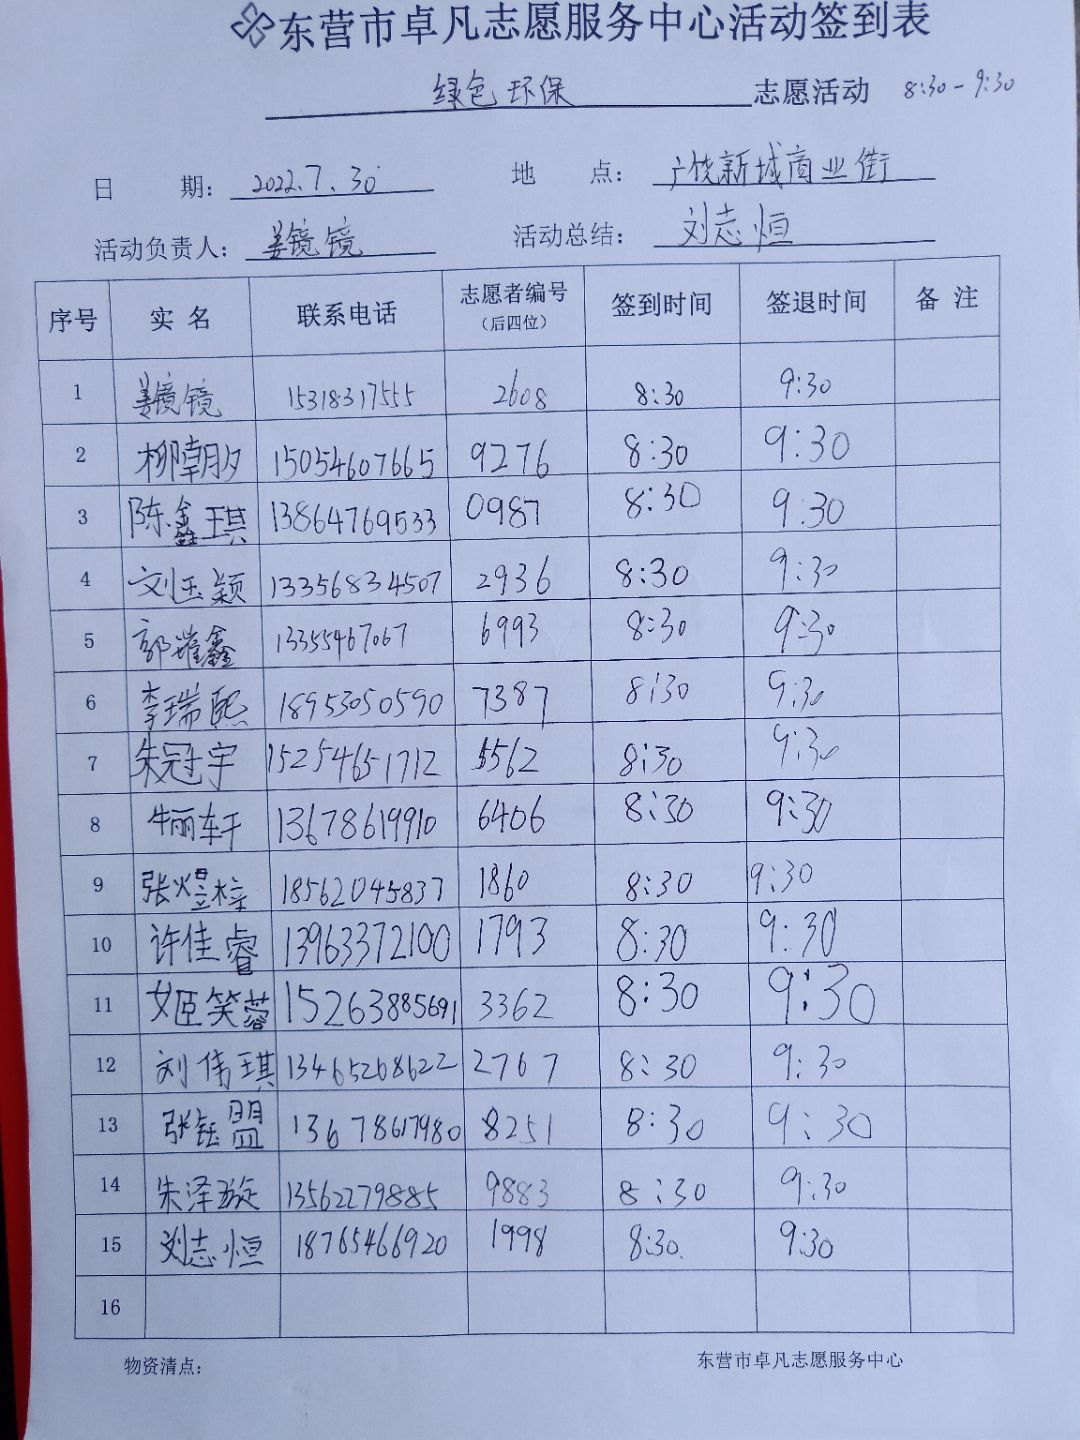 东营市卓凡志愿服务中心活动签到表
绿色环保 志愿活动 8:30-9:30
日 期: 2022.7.30 地 点: 广饶新城商业街
活动负责人: 姜镜镜 活动总结: 刘志恒
序号 实名 联系电话 志愿者编号(后四位) 签到时间 签退时间 备注
1 姜镜镜 15318317555 2608 8:30 9:30
2 柳朝夕 15054607665 9276 8:30 9:30
3 陈鑫琪 13864769533 0987 8:30 9:30
4 刘玉颖 13356834507 2936 8:30 9:30
5 郭璀鑫 13355467067 6993 8:30 9:30
6 李瑞熙 18953050590 7387 8:30 9:30
7 朱冠宇 15254651712 5562 8:30 9:30
8 牛丽轩 13678619910 6406 8:30 9:30
9 张煜梓 18562045837 1860 8:30 9:30
10 许佳睿 13963372100 1793 8:30 9:30
11 姬笑蓉 15263885691 3362 8:30 9:30
12 刘伟琪 13465268622 2767 8:30 9:30
13 张钰盟 13678617980 8251 8:30 9:30
14 朱泽璇 13562279885 9883 8:30 9:30
15 刘志恒 18765466920 1998 8:30 9:30
16
物资清点: 东营市卓凡志愿服务中心